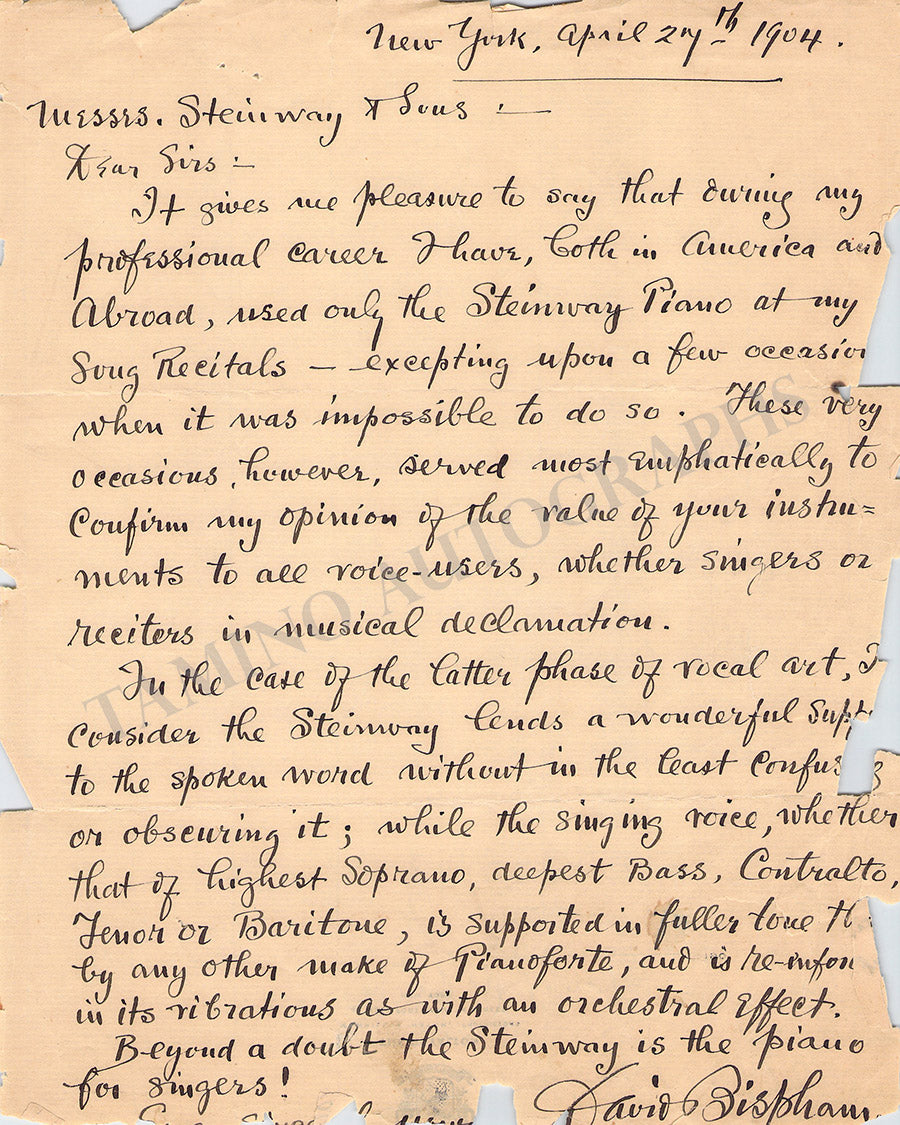 New York, April 27th 1904.
Messes. Steinway & Sons :—
Dear Sirs :—
It gives me pleasure to say that during my
professional career I have, both in America and
Abroad, used only the Steinway Piano at my
Song Recitals — excepting upon a few occasion
when it was impossible to do so. These very
occasions, however, served most emphatically to
confirm my opinion of the value of your instru=
ments to all voice-users, whether singers or
reciters in musical declamation.
In the case of the latter phase of vocal art, I
consider the Steinway lends a wonderful supp
to the spoken word without in the least confus g
or obscuring it; while the singing voice, whether
that of highest Soprano, deepest Bass, Contralto,
Tenor or Baritone, is supported in fuller tone th
by any other make of Pianoforte, and is re-infor
in its vibrations as with an orchestral effect.
Beyond a doubt the Steinway is the piano
for singers!
David Bispham.
TAMINO AUTOGRAPHS